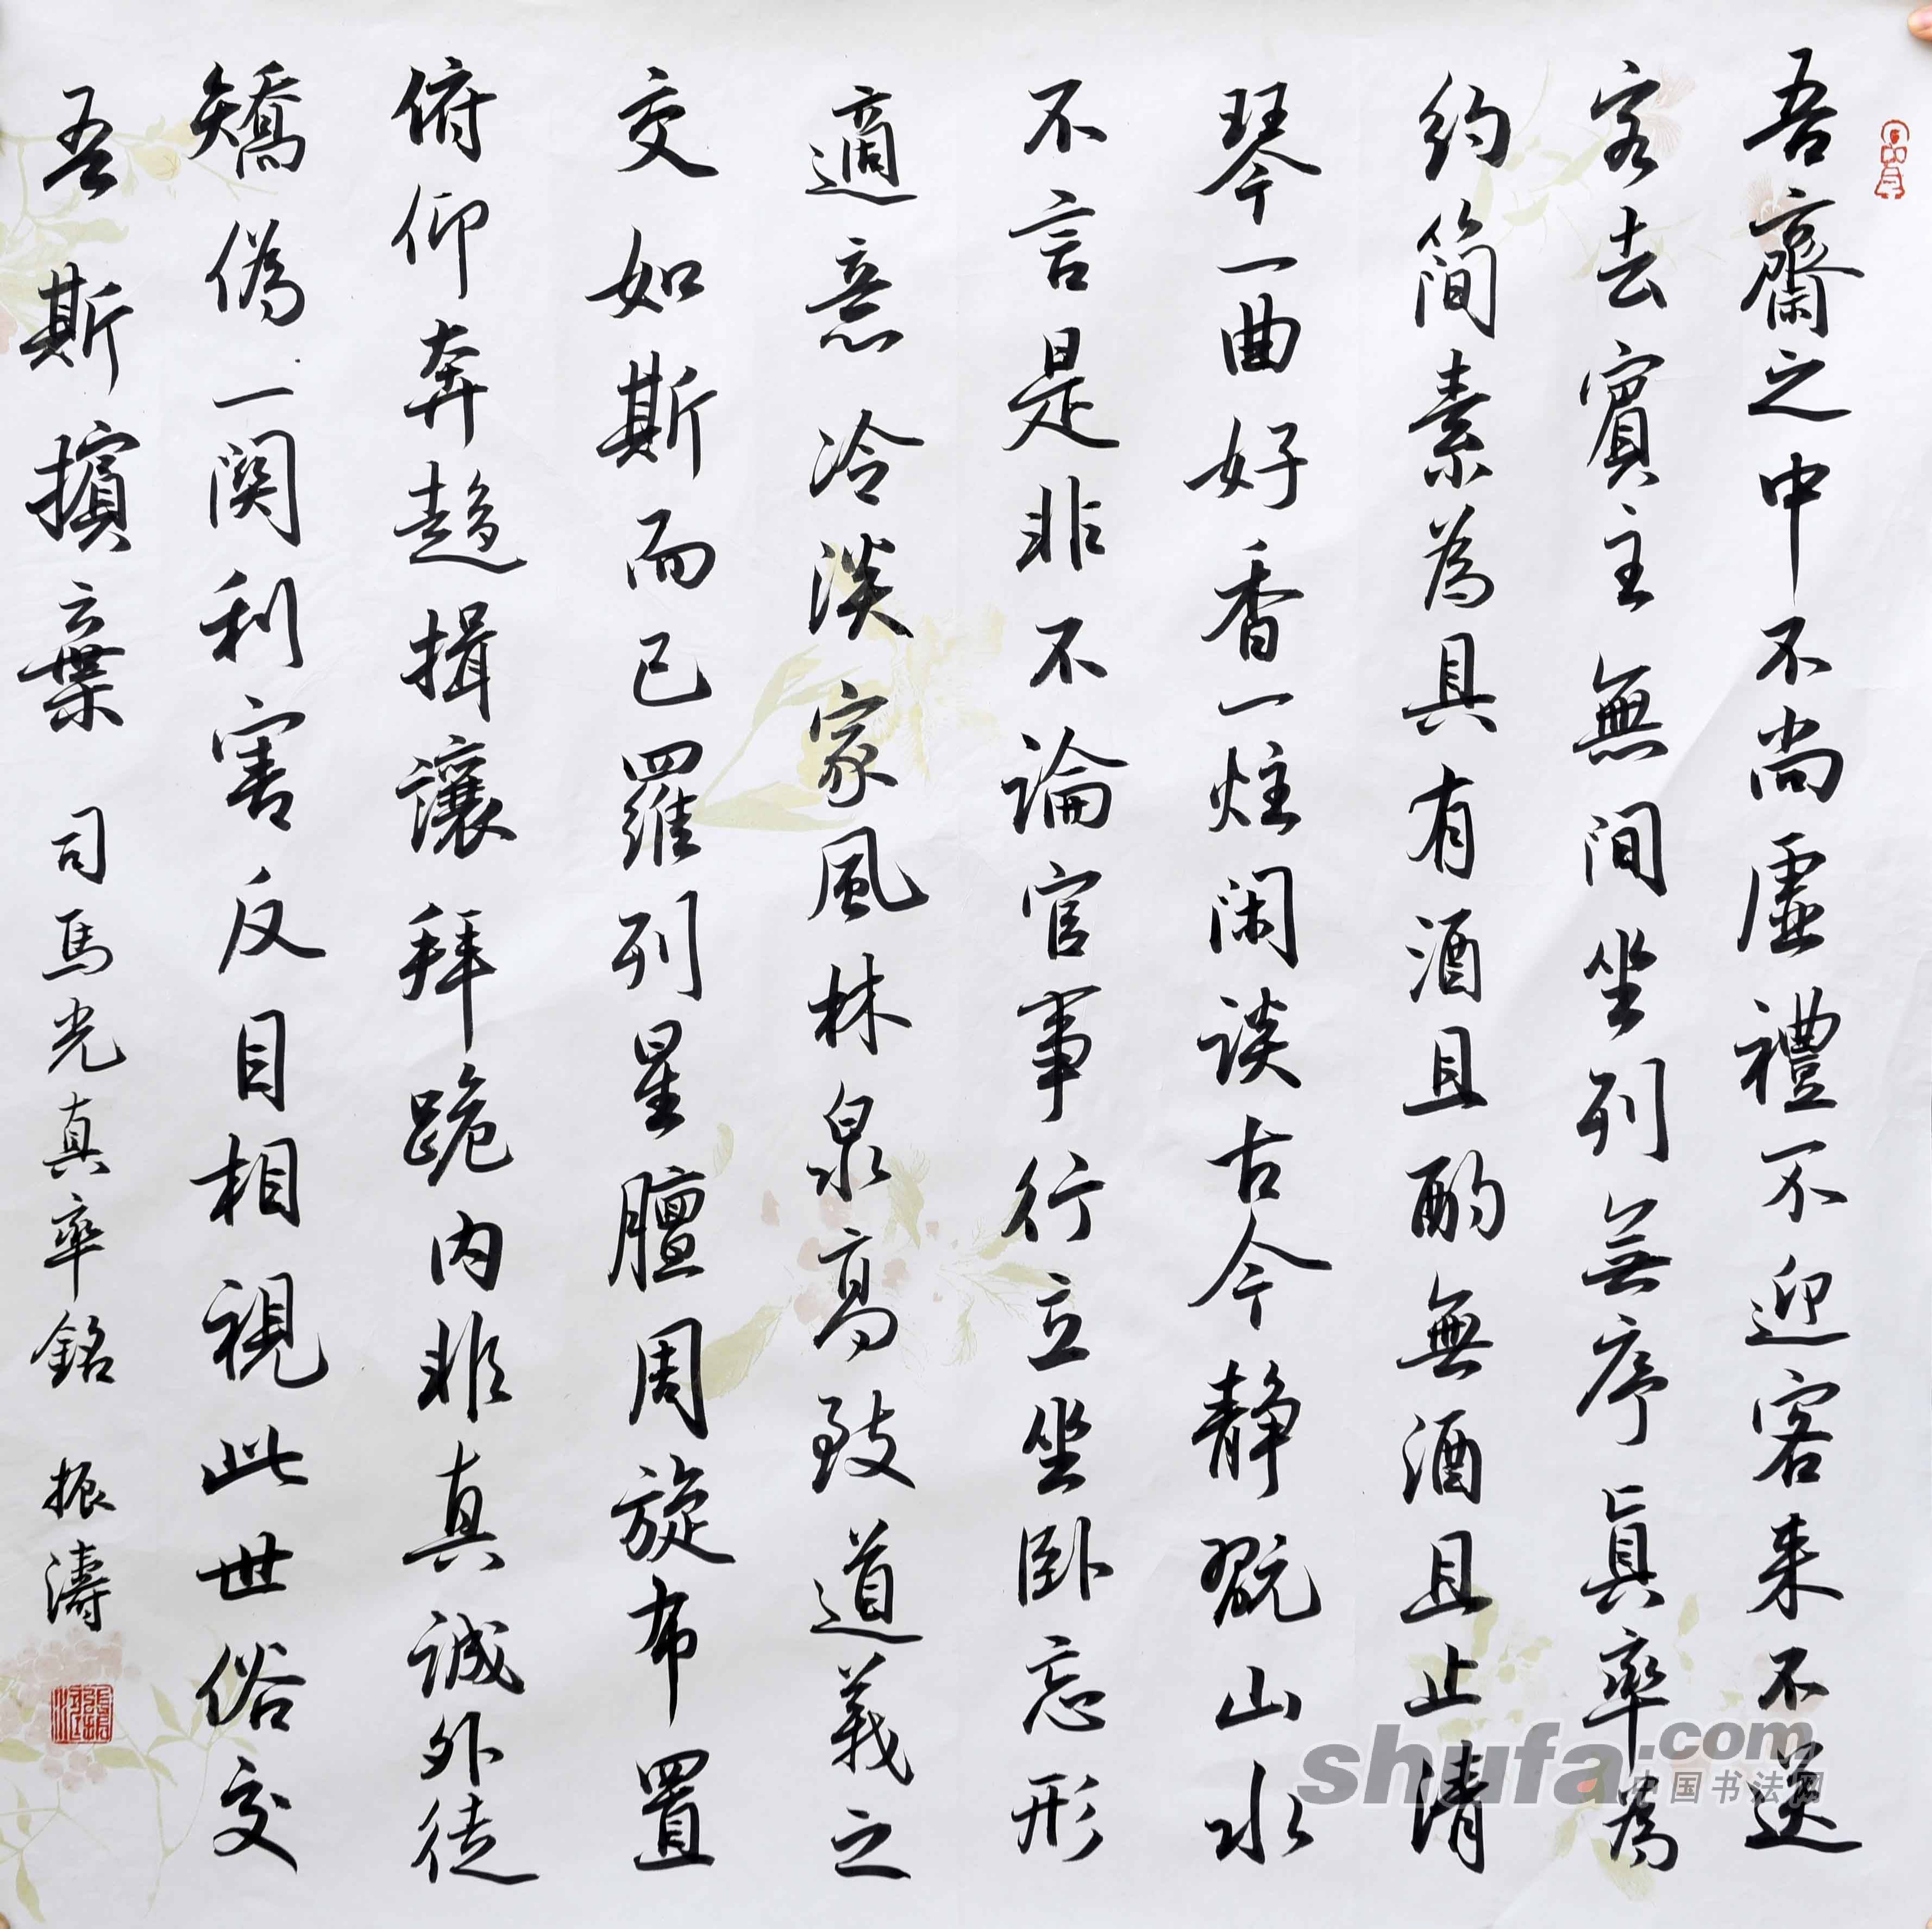 吾齋之中不尚虛禮不迎客来不送
客去賓主無間坐列無序真率為
約簡素為具有酒且酌無酒且止清
琴一曲好香一炷闲谈古今静翫山水
不言是非不論官事行立坐卧忘形
適意冷淡家風林泉高致道義之
交如斯而已羅列星膻周旋布置
俯仰奔趨揖讓拜跪内非真誠外徒
矯偽一関利害反目相視此世俗交
吾斯擯棄 司馬光真率銘 振濤
shufa.com
中国书法网